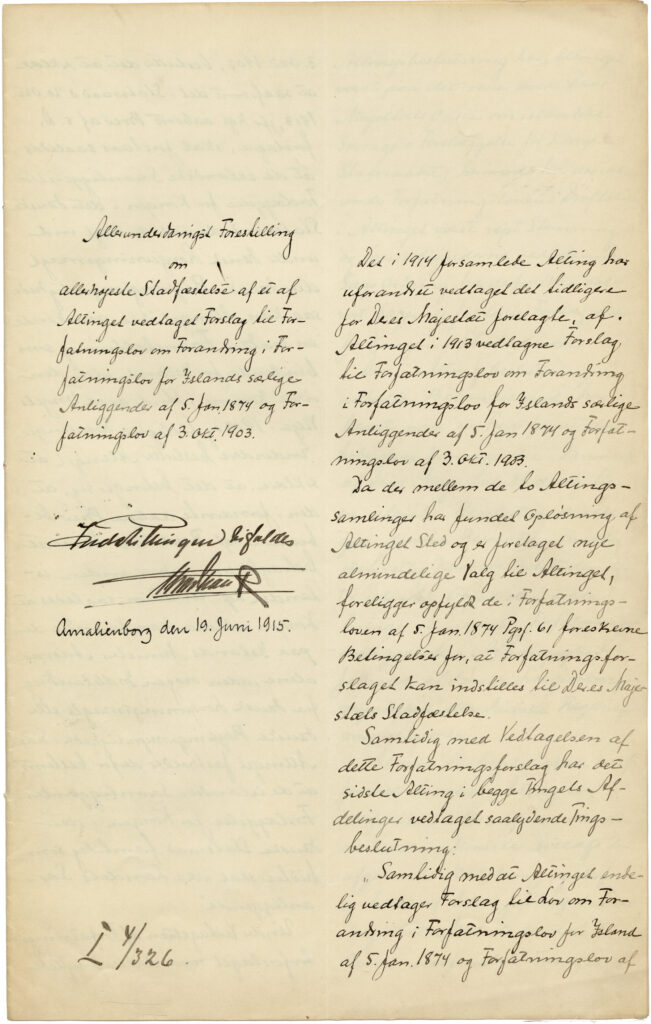 Allerunderdanigst Forestilling
om
allerhøjeste Stadfæstelse af et af
Altinget vedtaget Forslag til For-
fatningslov om Forandring i For-
fatningslov for Islands særlige
Anliggender af 5. Jan. 1874 og For-
fatningslov af 3. Okt. 1903.
Indstillingen bifaldes
Christian R
Amalienborg den 19. Juni 1915.
I 4/326.
Det i 1914 forsamlede Alting har
uforandret vedtaget det tidligere
for Deres Majestæt forelagte, af
Altinget i 1913 vedtagne Forslag
til Forfatningslov om Forandring
i Forfatningslov for Islands særlige
Anliggender af 5. Jan 1874 og Forfat-
ningslov af 3. Okt. 1903.
Da der mellem de to Altings-
samlinger har fundet Opløsning af
Altinget Sted og er foretaget nye
almindelige Valg til Altinget,
foreligger opfyldt de i Forfatnings-
loven af 5. Jan. 1874 Pgf. 61 foreskrevne
Betingelser for, at Forfatningsfor-
slaget kan indstilles til Deres Maje-
stæts Stadfæstelse.
Samtidig med Vedtagelsen af
dette Forfatningsforslag har det
sidste Alting i begge Tingets Af-
delinger vedtaget saalydende Tings-
beslutning:
„Samtidig med at Altinget ende-
lig vedtager Forslag til Lov om For-
andring i Forfatningslov for Island
af 5. Jan. 1874 og Forfatningslov af